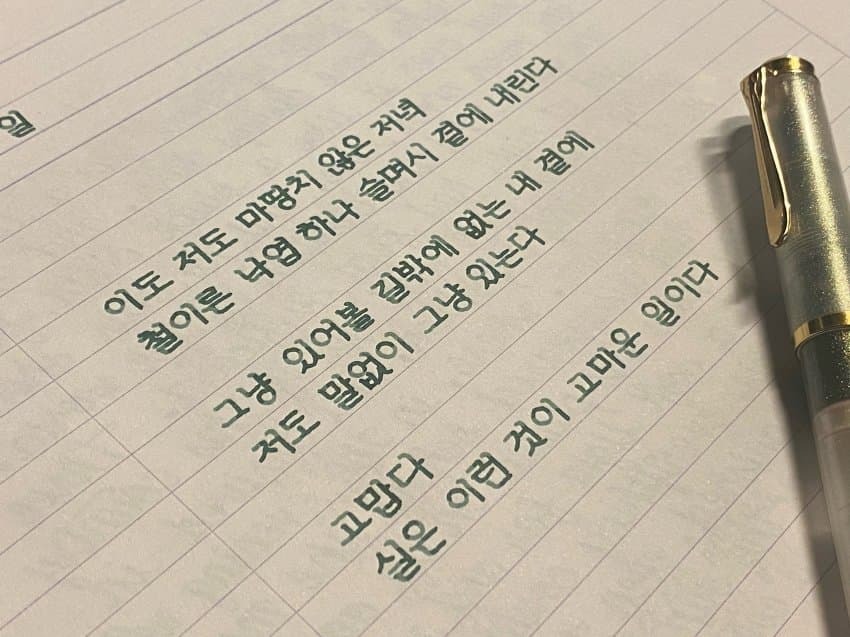 일
이도 저도 마땅치 않은 저녁
철이른 낙엽 하나 슬며시 곁에 내린다
그냥 있어볼 길밖에 없는 내 곁에
저도 말없이 그냥 있는다
고맙다
실은 이런 것이 고마운 일이다